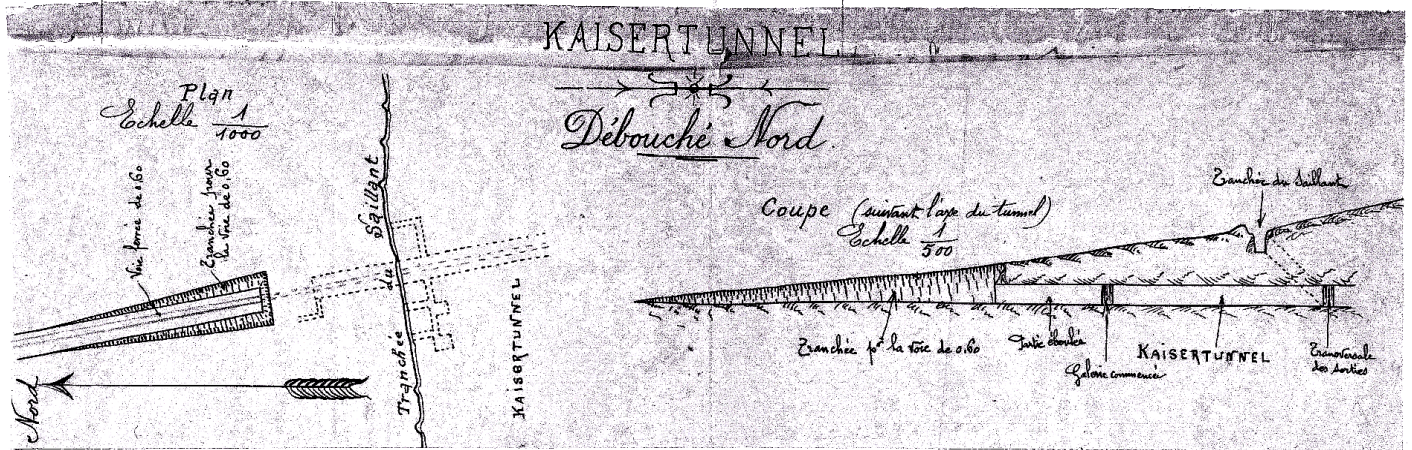 KAISERTUNNEL
Débouché Nord.
Plan
Echelle 1/1000
Voie ferrée de 0,60
Tranchée pour
la voie de 0,60
Tranchée du Saillant
KAISERTUNNEL
Nord
Coupe (suivant l'axe du tunnel)
Echelle 1/500
Tranchée du Saillant
Tranchée pr la voie de 0.60
Partie éboulée
Galerie commencée
KAISERTUNNEL
Transversale
des sorties